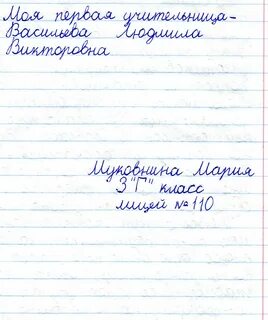 Моя первая учительница-
Васильева Людмила
Викторовна
Муковнина Мария
3 "Г" класс
лицей № 110